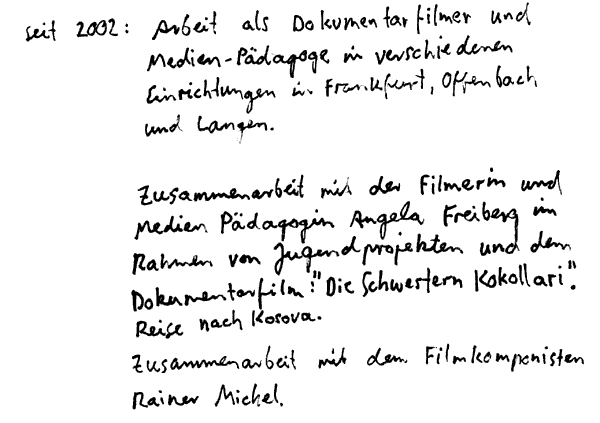 seit 2002: Arbeit als Dokumentarfilmer und
Medien-Pädagoge in verschiedenen
Einrichtungen in Frankfurt, Offenbach
und Langen.
Zusammenarbeit mit der Filmerin und
Medien Pädagogin Angela Freiberg im
Rahmen von Jugendprojekten und dem
Dokumentarfilm: "Die Schwestern Kokollari".
Reise nach Kosova.
Zusammenarbeit mit dem Filmkomponisten
Rainer Michel.